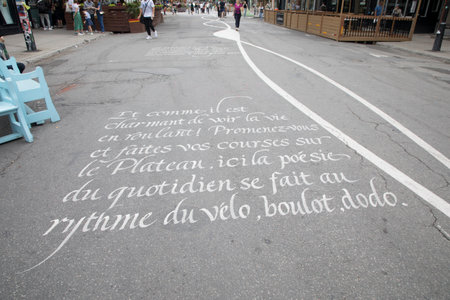 Et comme il est
charmant de voir la vie
en roulant! Promenez-vous
et faites vos courses sur
le Plateau, ici la poésie
du quotidien se fait au
rythme du vélo, boulot, dodo.